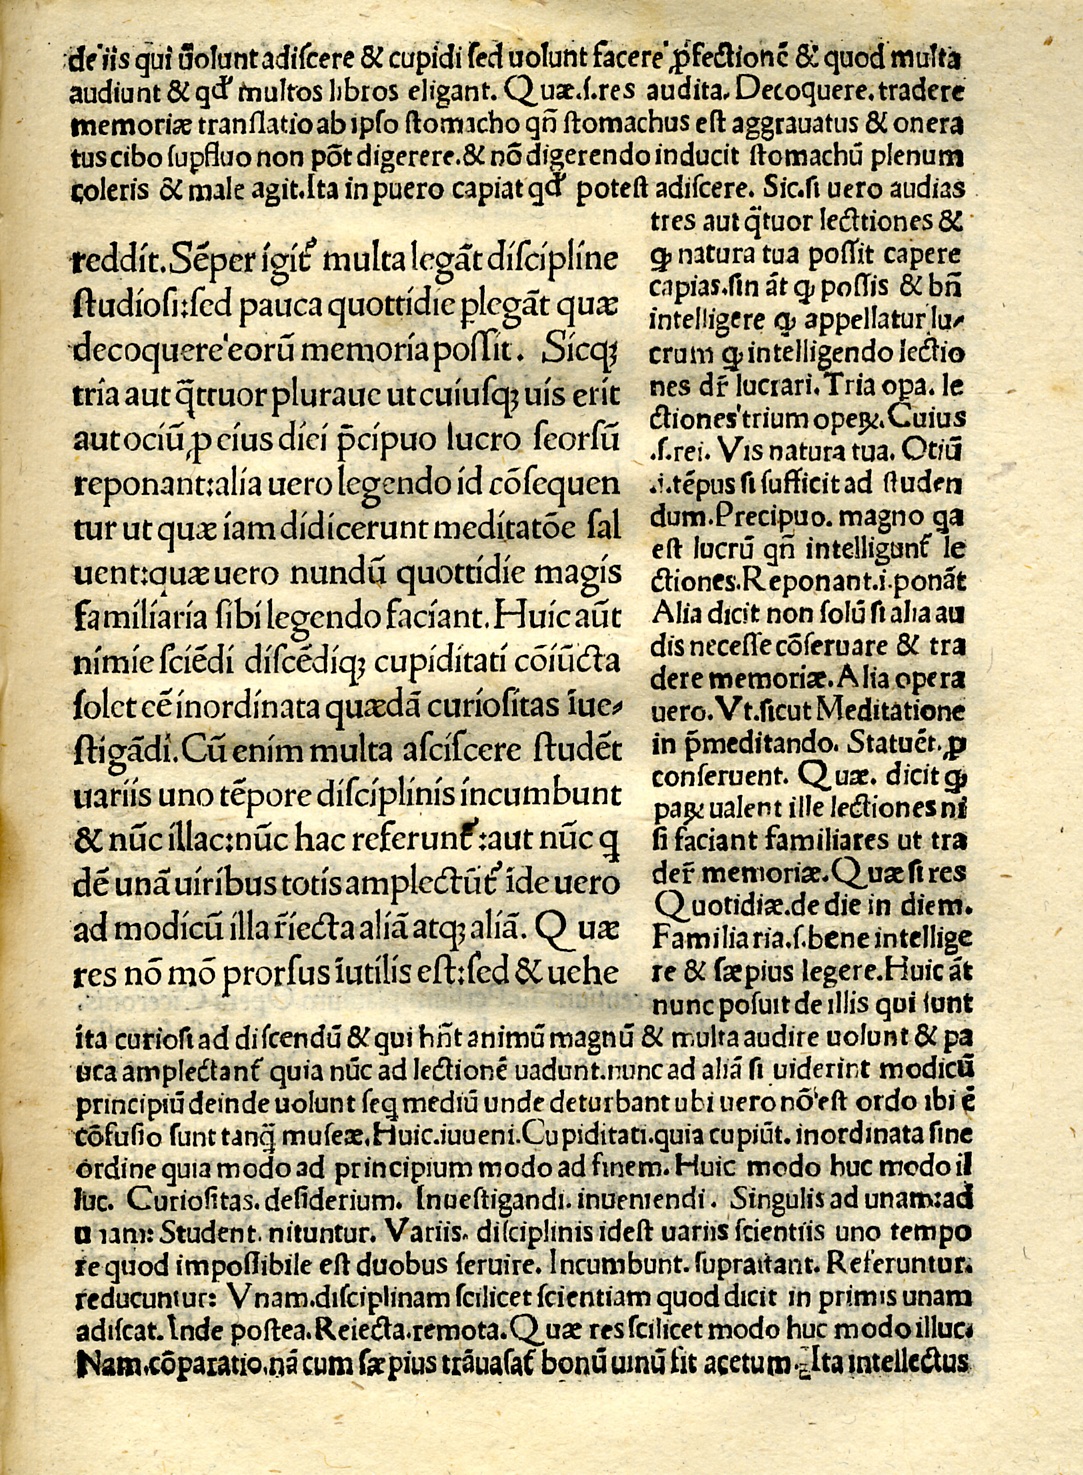 de iis qui uolunt adiſcere & cupidi ſed uolunt facere ꝓfectionē & quod multa
audiunt & qđ multos libros eligant. Quæ.ſ.res audita. Decoquere.tradere
memoriæ tranſlatio ab ipſo ſtomacho qñ ſtomachus eſt aggrauatus & onera
tus cibo ſupfluo non pōt digerere.& nō digerendo inducit ſtomachū plenum
coleris & male agit.Ita in puero capiat qđ poteſt adiſcere. Sic.ſi uero audias
reddit.Sēper igit᷑ multa legāt diſcipline
ſtudioſi:ſed pauca quottidie ꝑlegāt quæ
decoquere eorū memoria poſſit. Sicq;
tria aut q̄ttuor pluraue ut cuiuſq; uis erit
aut ociū,ꝓ eius diei p̄cipuo lucro ſeorſū
reponant:alia uero legendo id cōſequen
tur ut quæ iam didicerunt meditatōe ſal
uent:quæ uero nundū quottidie magis
familiaria ſibi legendo faciant.Huic aūt
nimie ſciēdi diſcēdiq; cupiditati cōiūcta
ſolet eē inordinata quædā curioſitas īue⸗
ſtigādi.Cū enim multa aſciſcere ſtudēt
uariis uno tēpore diſciplinis incumbunt
& nūc illac:nūc hac referunt᷑:aut nūc q
dē unā uiribus totis amplectūt᷑ īde uero
ad modicū illa r̄iecta aliā atq; aliā. Quæ
res nō mō prorſus īutilis eſt:ſed & uehe
tres aut q̄tuor lecttiones &
ꝙ natura tua poſſit capere
capias.ſin āt ꝙ poſſis & bñ
intelligere ꝙ appellatur lu⸗
crum ꝙ intelligendo lectio
nes dr̄ lucrari.Tria opa. le
ctiones trium opeꝝ.Cuius
.ſ.rei. Vis natura tua. Otiū
.i.tēpus ſi ſufficit ad ſtuden
dum.Precipuo. magno qa
eſt lucrū qñ intelligunt᷑ le
ctiones.Reponant.i.ponāt
Alia dicit non ſolū ſi alia au
dis neceſſe cōſeruare & tra
dere memoriæ.Alia opera
uero.Vt.ſicut Meditatione
in p̄meditando. Statuēt.ꝓ
conſeruent. Quæ. dicit ꝙ
paꝝ ualent ille lectiones ni
ſi faciant familiares ut tra
der̄ memoriæ.Quæ ſi res
Quotidiæ.de die in diem.
Familiaria.ſ.bene intellige
re & ſæpius legere.Huic āt
nunc poſuit de illis qui ſunt
ita curioſi ad diſcendū & qui hñt animū magnū & multa audire uolunt & pa
uca amplectant᷑ quia nūc ad lectionē uadunt.nunc ad aliā ſi uiderint modicū
principiū deinde uolunt ſeq mediū unde deturbant ubi uero nō eſt ordo ibi ē
cōfuſio ſunt tanq̄ muſeæ.Huic.iuueni.Cupiditati.quia cupiūt. inordinata ſine
ordine quia modo ad principium modo ad finem. Huic modo huc modo il
luc. Curioſitas. deſiderium. Inueſtigandi. inueniendi. Singulis ad unam:ad
Student. nituntur. Variis. diſciplinis ideſt uariis ſcientiis uno tempo
re quod impoſſibile eſt duobus ſeruire. Incumbunt. ſupraſtant. Referuntur.
reducuntur: Vnam.diſciplinam ſcilicet ſcientiam quod dicit in primis unam
adiſcat.Inde poſtea.Reiecta.remota.Quæ res ſcilicet modo huc modo illuc.
Nam.cōparatio.nā cum ſæpius trāuaſat᷑ bonū uinū fit acetum. Ita intellectus